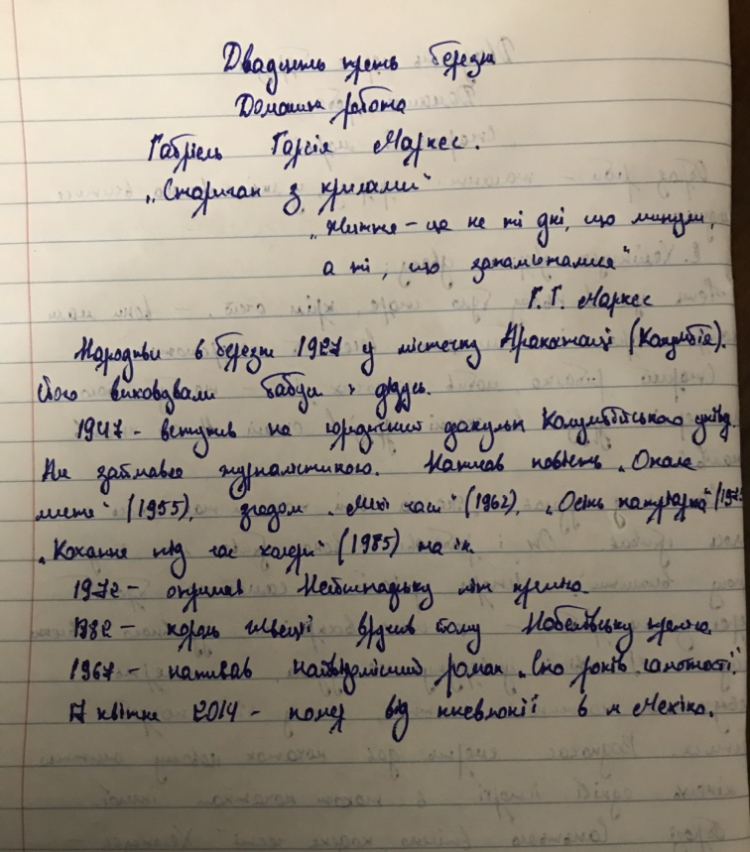 Двадцять третє березня
Домашня робота
Габріель Гарсія Маркес.
„Стариган з крилами"
„Життя – це не ті дні, що минули,
а ті, що запам'яталися"
Г. Г. Маркес
Народився в березні 1927 у містечку Аракатаці (Колумбія).
Його виховували бабуся і дідусь.
1947 – вступив на юридичний факульт Колумбійського унів.
Там займався журналістикою. Написав повість „Опале
листя" (1955), згодом „Лихі часи" (1962), „Осінь патріарха" (197
„Кохання під час холери" (1985) та ін.
1972 – отримав літ премію.
1982 – король Швеції вручив йому Нобелівську премію.
1967 – написав найвідоміший роман „Сто років самотності".
17 квітня 2014 – помер від пневмонії в м Мехіко.